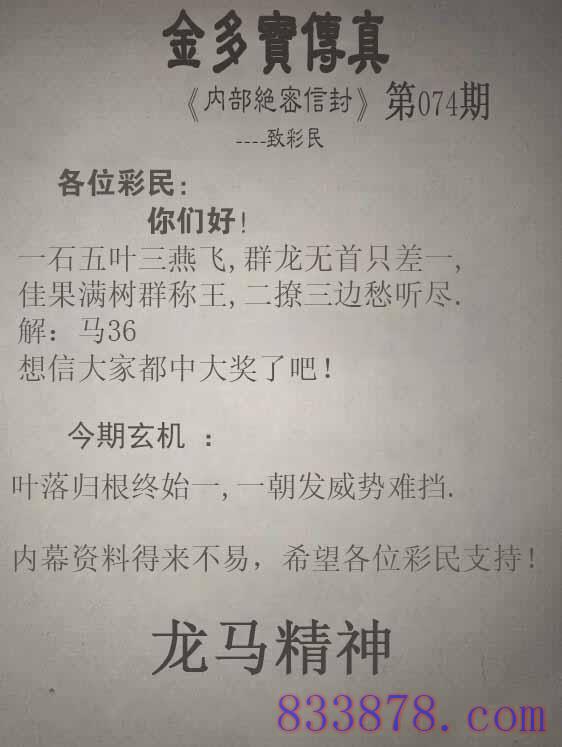 金多寶傳真
《内部絶密信封》第074期
----致彩民
各位彩民:
你们好!
一石五叶三燕飞,群龙无首只差一,
佳果满树群称王,二撩三边愁听尽.
解：马36
想信大家都中大奖了吧!
今期玄机 ：
叶落归根终始一,一朝发威势难挡.
内幕资料得来不易，希望各位彩民支持!
龙马精神
833878.com